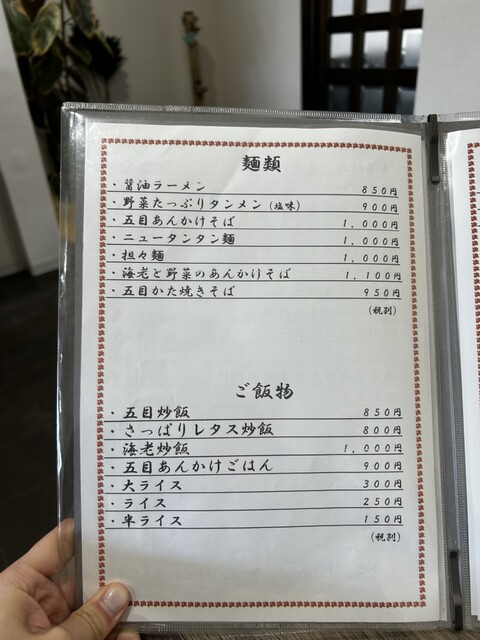 麺類
・醤油ラーメン 850円
・野菜たっぷりタンメン(塩味) 900円
・五目あんかけそば 1,000円
・ニュータンタン麺 1,000円
・担々麺 1,000円
・海老と野菜のあんかけそば 1,100円
・五目かた焼きそば 950円
(税別)
ご飯物
・五目炒飯 850円
・さっぱりレタス炒飯 800円
・海老炒飯 1,000円
・五目あんかけごはん 900円
・大ライス 300円
・ライス 250円
・半ライス 150円
(税別)